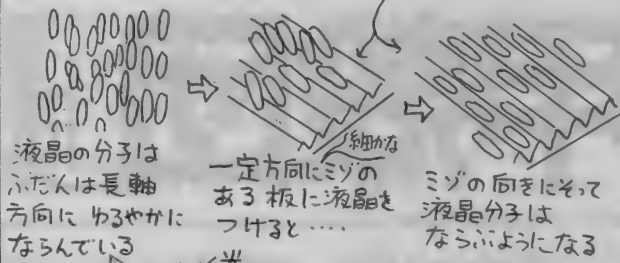 液晶の分子は
ふだんは長軸
方向に ゆるやかに
ならんでいる
細かな
一定方向にミゾの
ある 板に液晶を
つけると‥‥
ミゾの向きにそって
液晶分子は
ならぶようになる
光